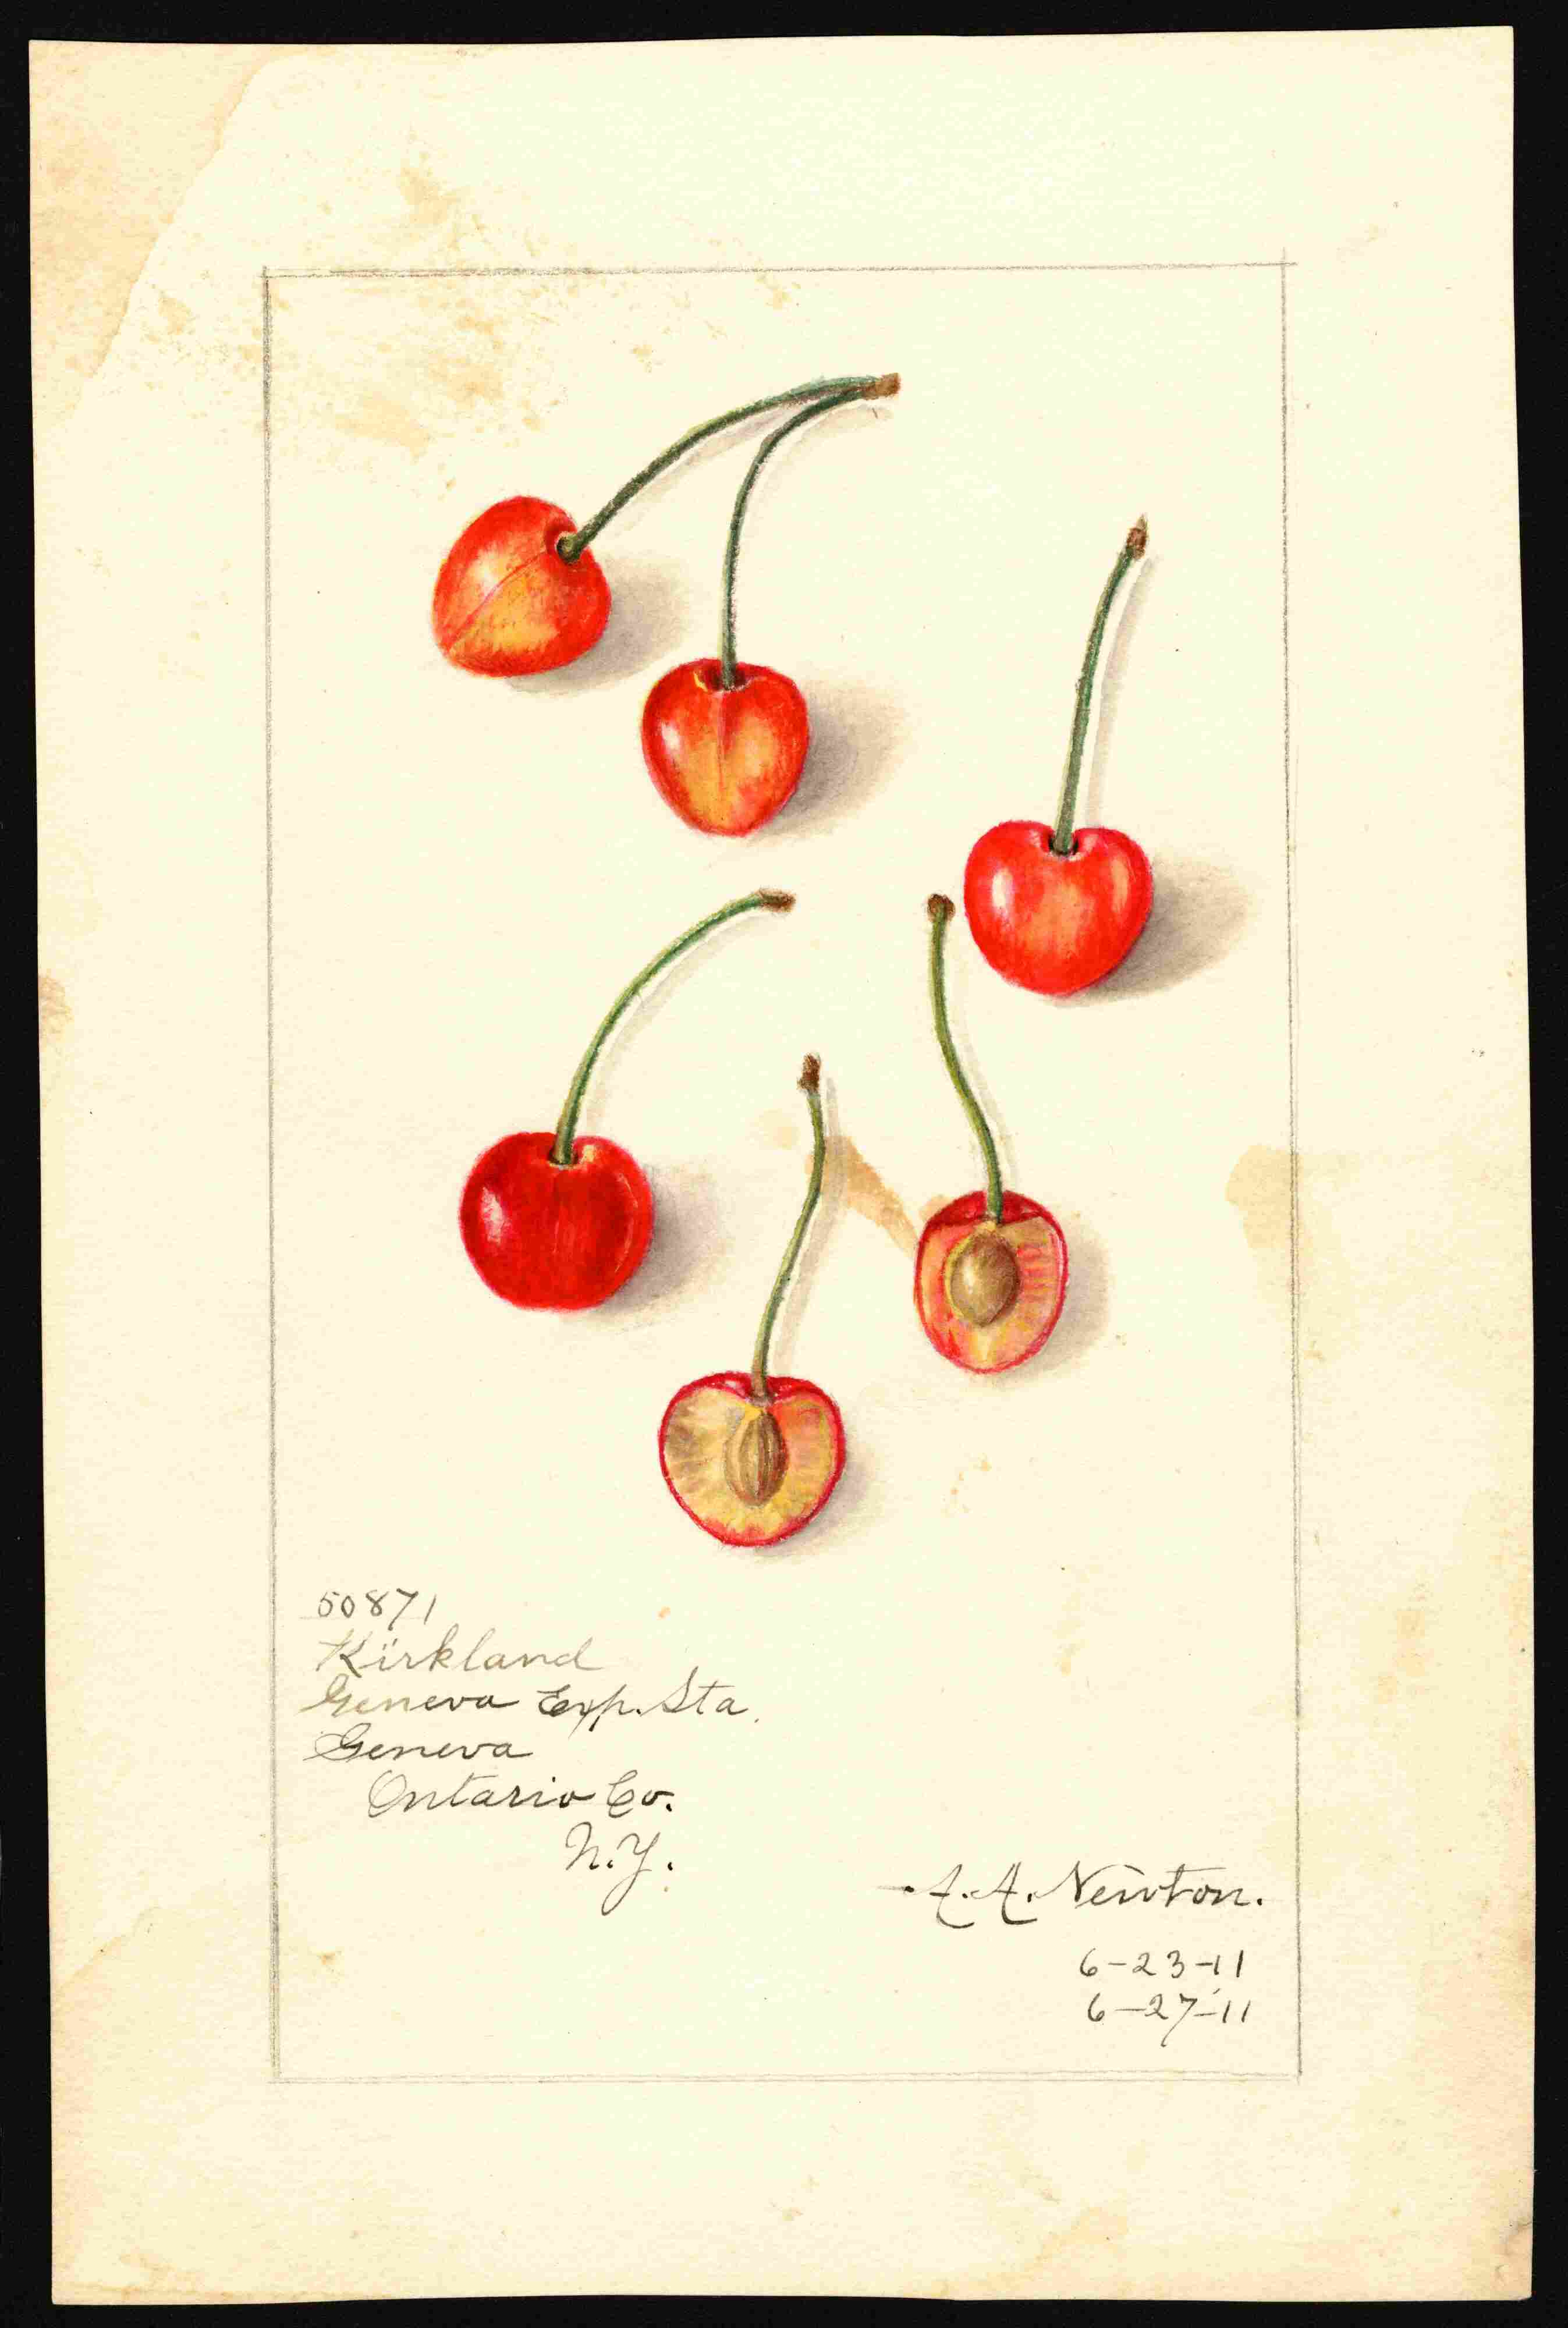 50871
Kirkland
Geneva Exp. Sta.
Geneva
Ontario Co.
N.Y.
A. A. Newton.
6-23-11
6-27-11